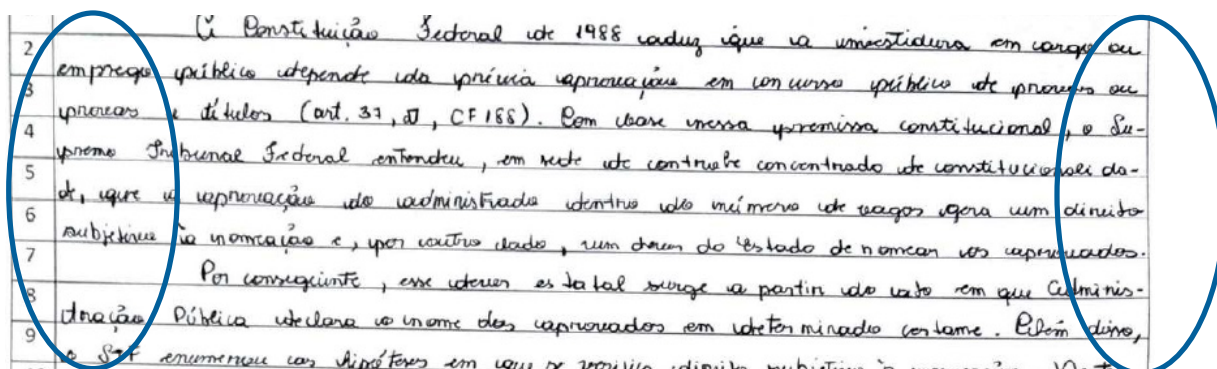 A Constituição Federal de 1988 aduz que a investidura em cargo ou
2
emprego público depende da prévia aprovação em concurso público de provas ou
3
provas e títulos (art. 37, II, CF/88). Com base nessa premissa constitucional, o Su-
4
premo Tribunal Federal entendeu, em sede de controle concentrado de constitucionalida-
5
de, que a aprovação do administrado dentro do número de vagas gera um direito
6
subjetivo à nomeação e, por outro lado, um dever do Estado de nomear os aprovados.
7
Por conseguinte, esse dever estatal surge a partir do ato em que Adminis-
8
tração Pública declara o nome dos aprovados em determinado certame. Além disso,
9
o STF enumerou as hipóteses em que se direito subjetivo à